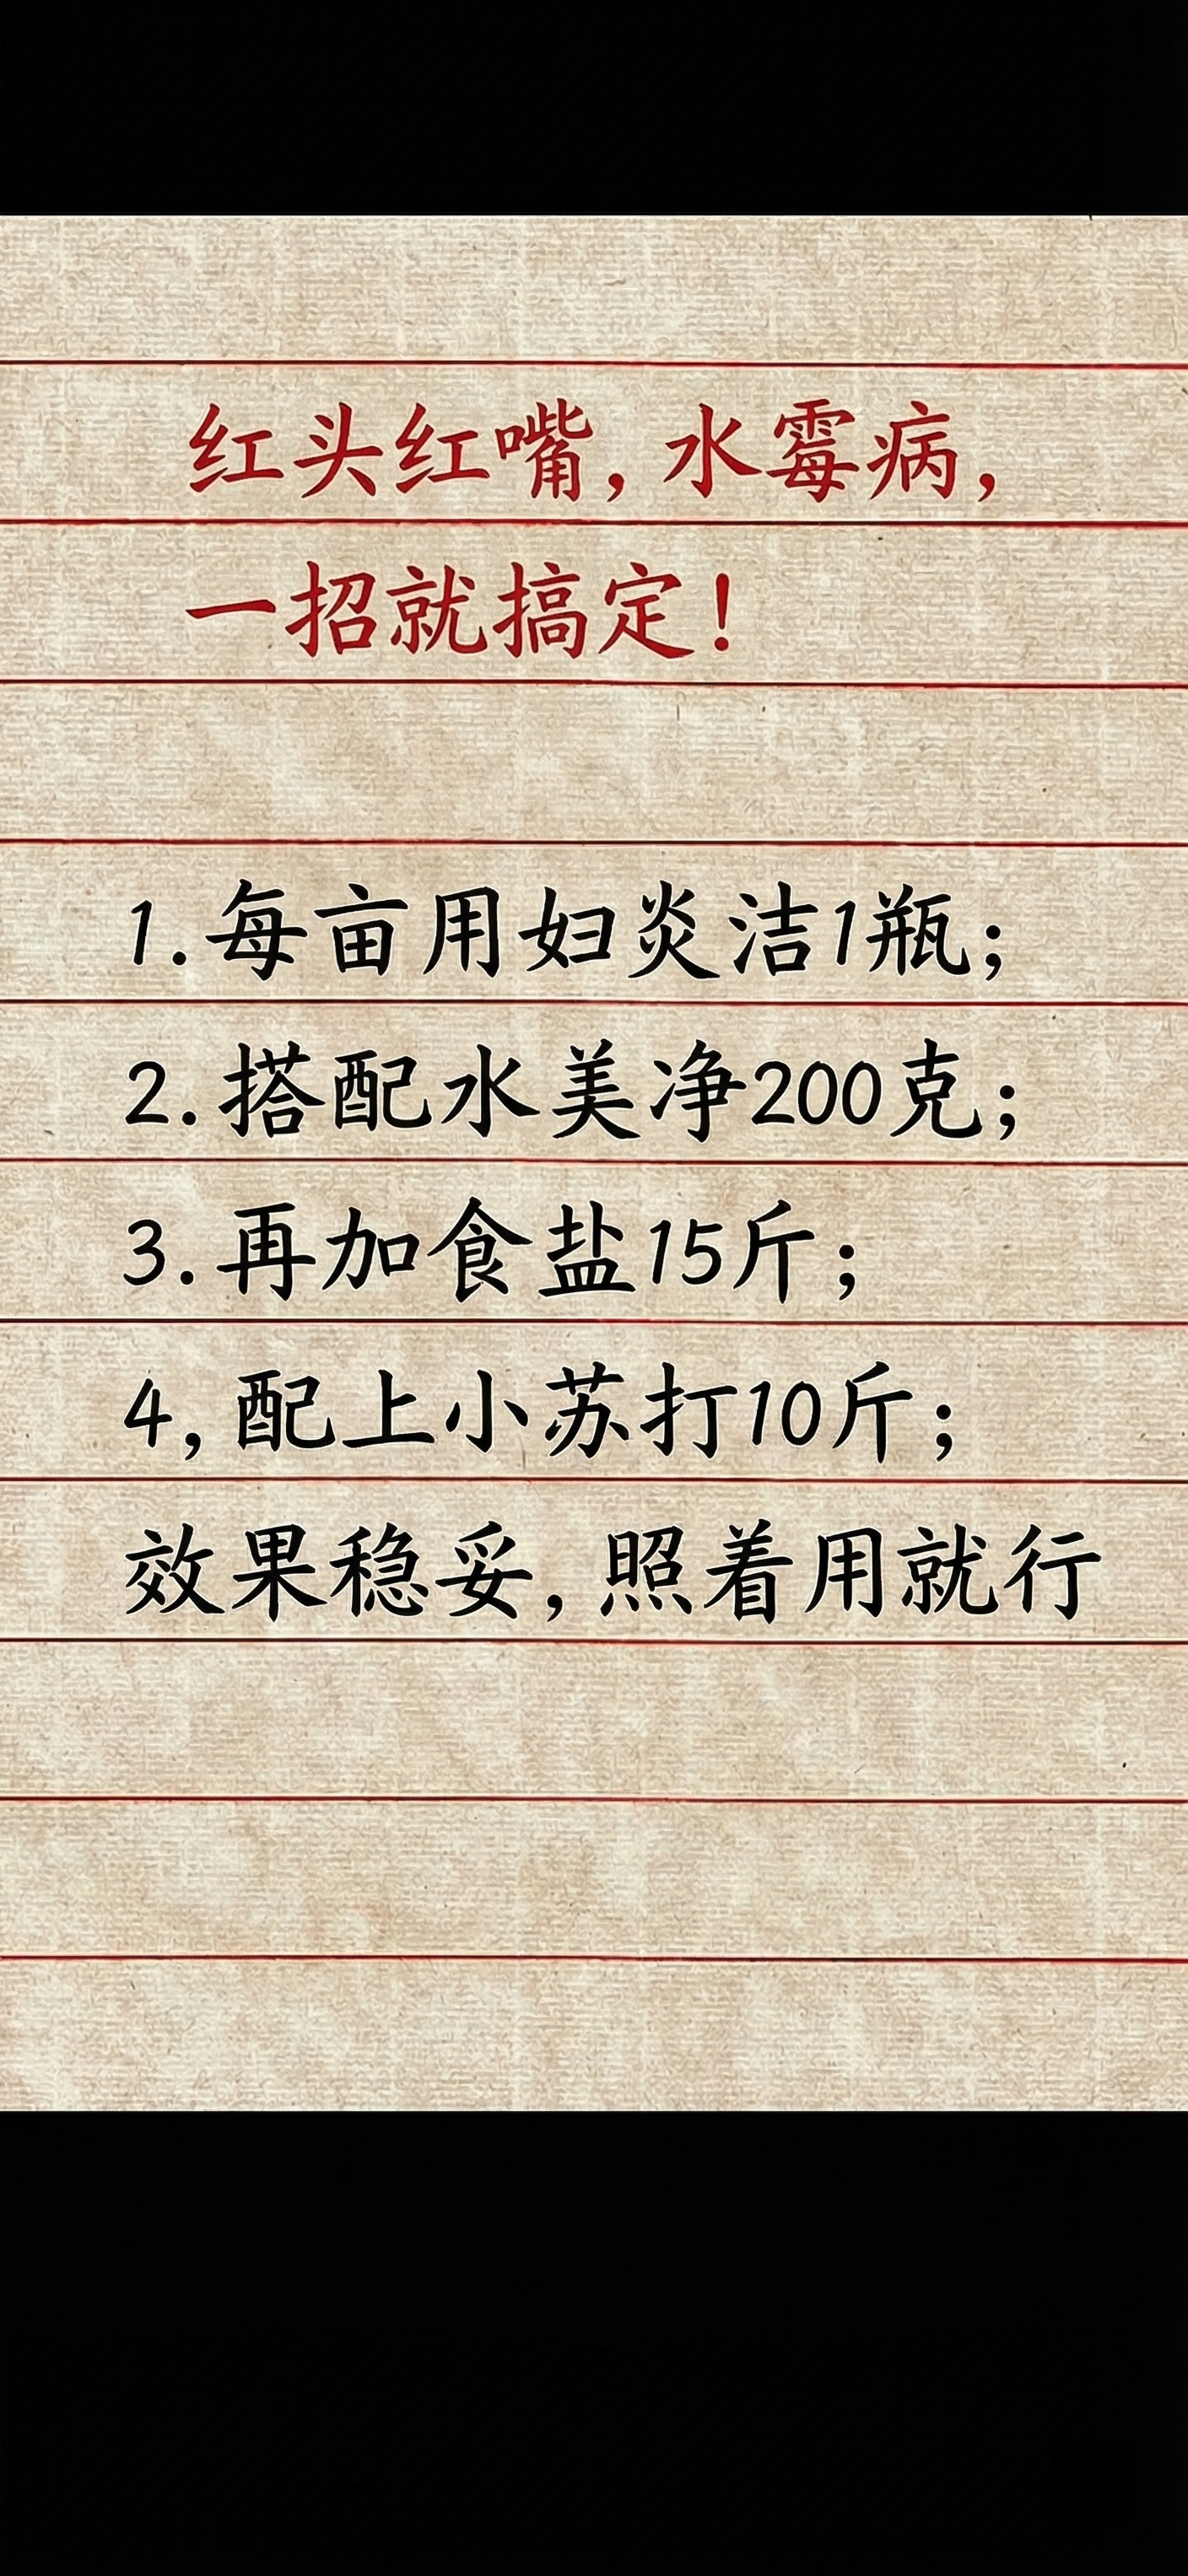 红头红嘴,水霉病,
一招就搞定!
1.每亩用妇炎洁1瓶;
2.搭配水美净200克;
3.再加食盐15斤;
4,配上小苏打10斤;
效果稳妥,照着用就行